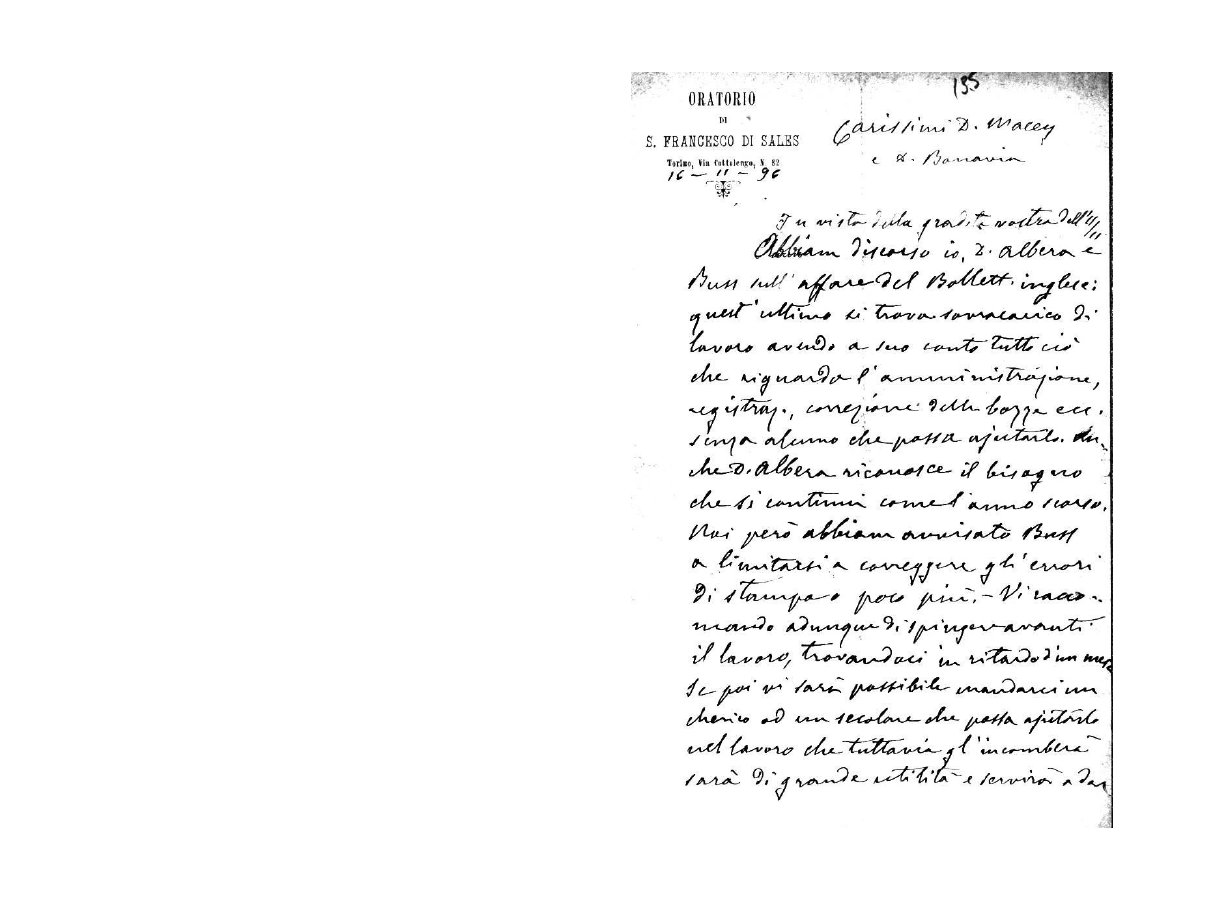 135
ORATORIO
DI
S. FRANCESCO DI SALES
Torino, Via Cottolengo, N. 32
16 - 11 - 96
Carissimi D. Macey
e D. Bonavia
In vista della gradita vostra dell' 11/11
Abbiam discorso io, D. Albera e
Buss sull' affare del Bollett. inglese:
quest' ultimo si trova sovracarico di
lavoro avendo a suo conto tutto ciò
che riguarda l' amministrazione,
registraz., correzione delle bozze ecc.
senza alcuno che possa ajutarlo. An-
che D. Albera riconosce il bisogno
che si continui come l' anno scorso.
Noi però abbiam avvisato Buss
a limitarsi a correggere gli errori
di stampa o poco più. - Vi racco-
mando adunque di spingere avanti
il lavoro, trovandoci in ritardo d' un mese
Se poi vi sarà possibile mandarci un
cherico od un secolare che possa ajutarlo
nel lavoro che tuttavia gl' incomberà
sarà di grande utilità e servirà a dar